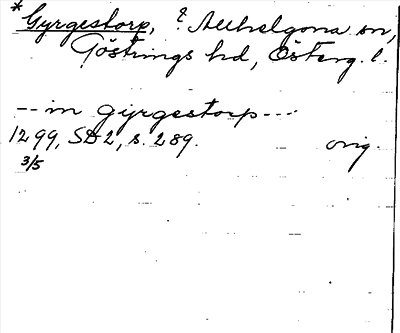 *Gyrgestorp, ? Allhelgona sn,
Göstrings hd, Österg. l.
-- in gyrgestorp ---
1299, SD 2, s. 289. orig.
3/5